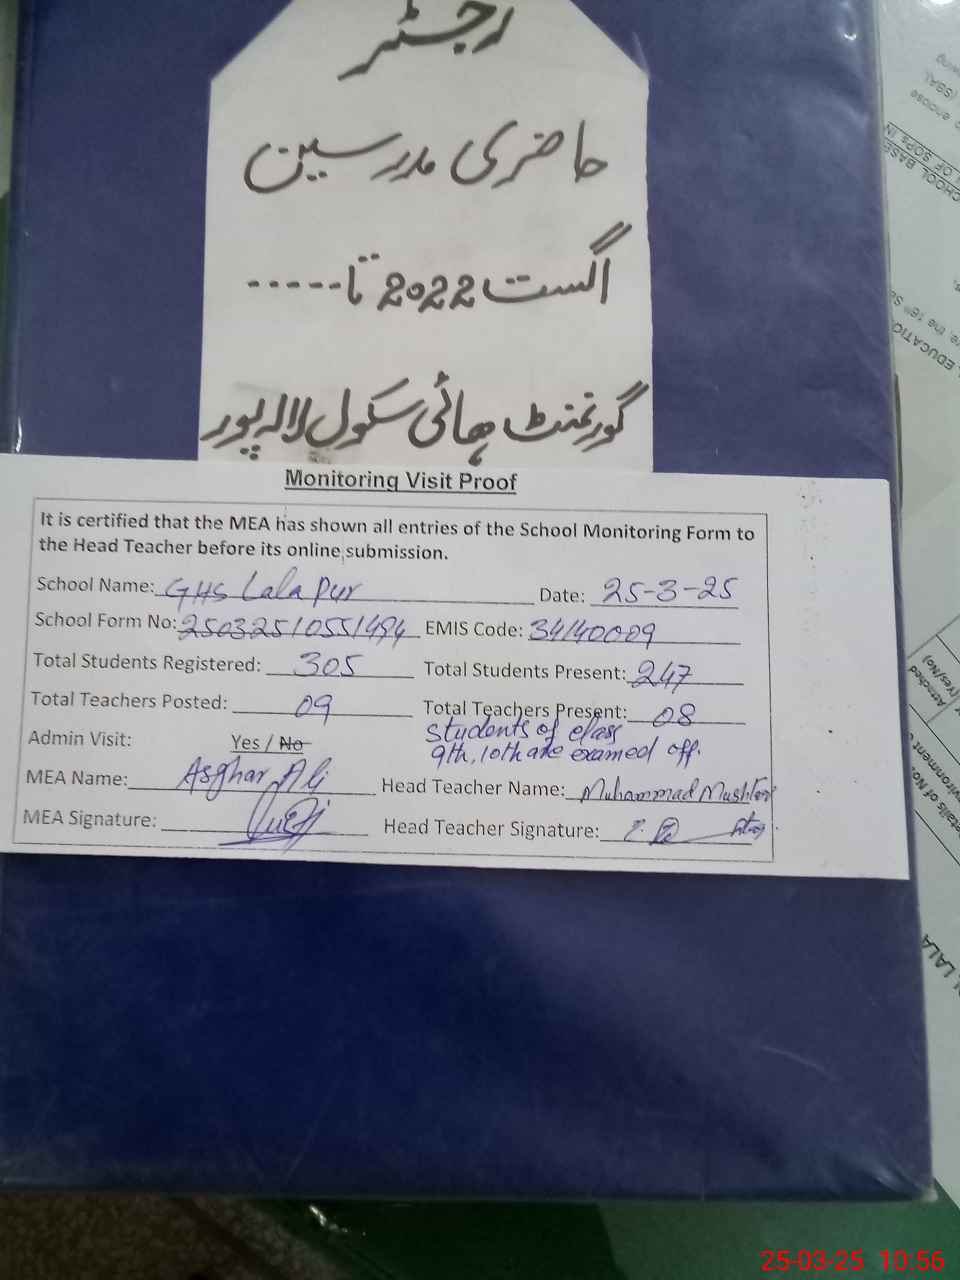 رجسٹر
حاضری مدرسین
اگست 2022 تا -----
گورنمنٹ ہائی سکول لالہ پور
Monitoring Visit Proof
It is certified that the MEA has shown all entries of the School Monitoring Form to
the Head Teacher before its online submission.
School Name: GHS Lala Pur Date: 25-3-25
School Form No: 25032510551494 EMIS Code: 34140009
Total Students Registered: 305 Total Students Present: 247
Total Teachers Posted: 09 Total Teachers Present: 08
Students of class
9th, 10th are examed off.
Admin Visit: Yes / No
MEA Name: Asghar Ali Head Teacher Name: Muhammad Mushtaq
MEA Signature: Head Teacher Signature:
enclose
(SBA)
SCHOOL BASE
OF SOPs IN
EDUCATION
the 16th
Attached
(Yes/No)
details of No.
LALA
25-03-25 10:56